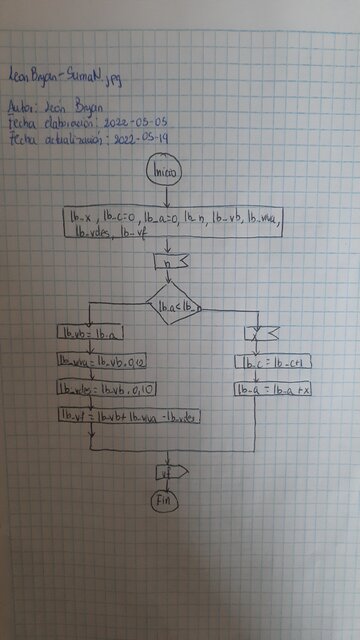 León Bryan-SumaN.jpg
Autor: León Bryan
Fecha elaboración: 2022-05-05
Fecha actualización: 2022-05-19
Inicio
lb_x, lb_c=0, lb_a=0, lb_n, lb_vb, lb_viva,
lb_vdes, lb_vf
n
lb_a<lb_n
lb_vb=lb_a
x
lb_viva=lb_vb.0,12
lb_c=lb_c+1
lb_vdes=lb_vb.0,10
lb_a=lb_a+x
lb_vf=lb_vb+lb_viva-lb_vdes
vf
Fin